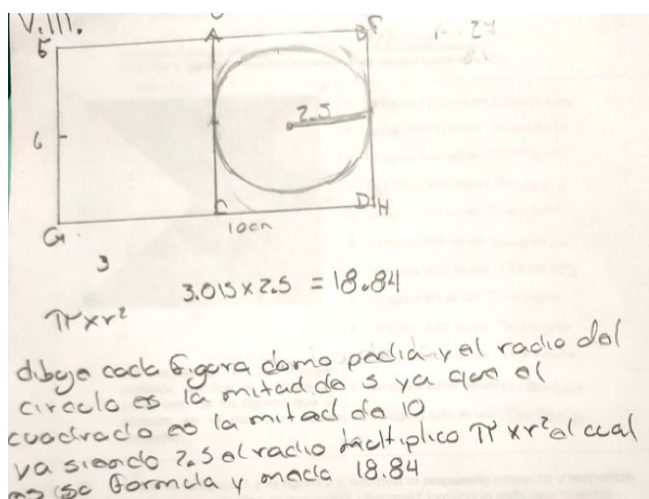 V.III.
A B F
E
2.5
6
C D H
G 10cm
3
3.015 x 2.5 = 18.84
π x r²
dibuje cada figura como pedia y el radio del
circulo es la mitad de 5 ya que el
cuadrado es la mitad de 10
ya siendo 2.5 el radio multiplico π x r² el cual
es su formula y me da 18.84